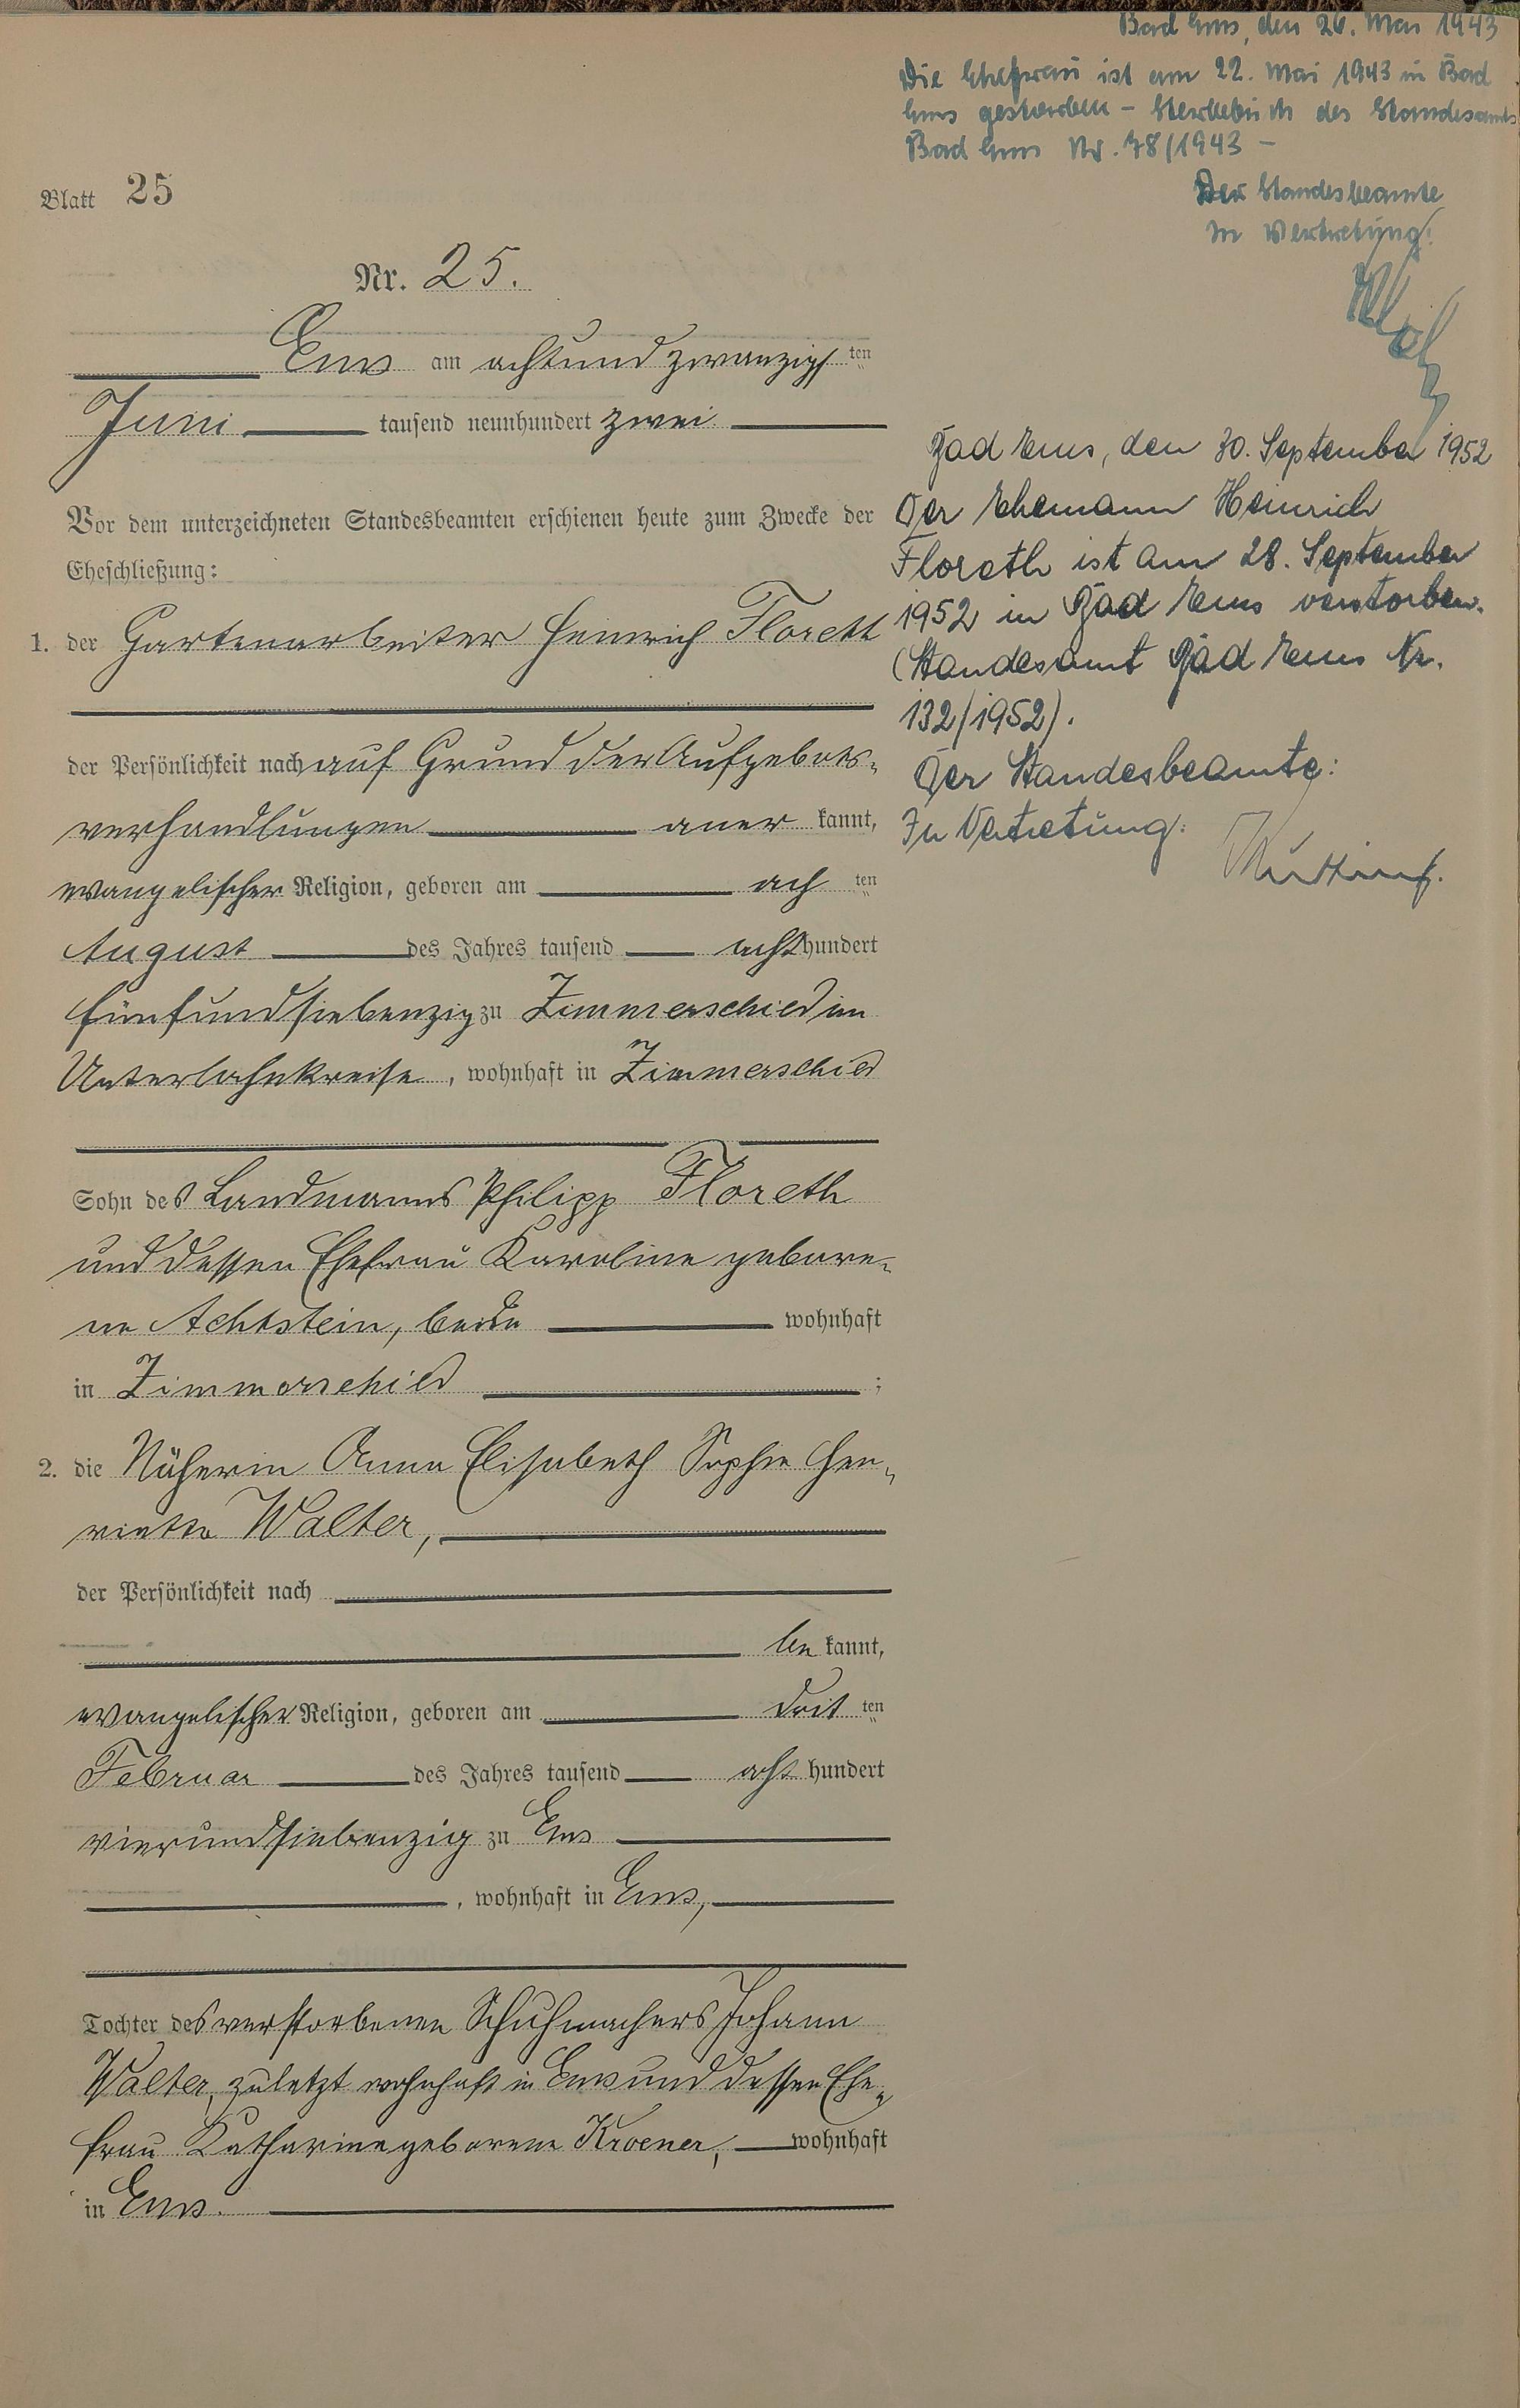 Blatt 25
Nr. 25.
Ems am achtund zwanzigsten
Juni tausend neunhundert zwei
Vor dem unterzeichneten Standesbeamten erschienen heute zum Zwecke der
Eheschließung:
1. der Gartenarbeiter Heinrich Floreth
der Persönlichkeit nach auf Grund der Aufgebots-
verhandlungen anerkannt,
evangelischer Religion, geboren am achten
August des Jahres tausend achthundert
fünfundsiebenzig zu Zimmerschied im
Unterlahnkreise, wohnhaft in Zimmerschied
Sohn des Landmanns Philipp Floreth
und dessen Ehefrau Karoline gebore-
ne Achtstein, beide wohnhaft
in Zimmerschied ;
2. die Näherin Anna Elisabeth Sophie Hen-
riette Walter,
der Persönlichkeit nach
bekannt,
evangelischer Religion, geboren am dritten
Februar des Jahres tausend acht hundert
vierundsiebenzig zu Ems
, wohnhaft in Ems,
Tochter des verstorbenen Schuhmachers Johann
Walter, zuletzt wohnhaft in Ems und dessen Ehe-
frau Katharine geborene Kroener, wohnhaft
in Ems.
Bad Ems, den 26. Mai 1943
Die Ehefrau ist am 22. Mai 1943 in Bad
Ems gestorben - Sterbebuch des Standesamts
Bad Ems Nr. 78/1943 -
Der Standesbeamte
In Vertretung:
Bad Ems, den 30. September 1952
Der Ehemann Heinrich
Floreth ist am 28. September
1952 in Bad Ems verstorben.
(Standesamt Bad Ems Nr.
132/1952).
Der Standesbeamte:
In Vertretung: